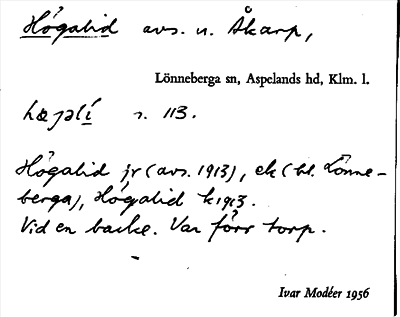 Högalid avs. u. Åkarp,
Lönneberga sn, Aspelands hd, Klm. l.
høgəlí s. 113.
Högalid jr (avs. 1913), ek (bl. Lönne-
berga), Högalid k 1913.
Vid en backe. Var förr torp.
Ivar Modéer 1956